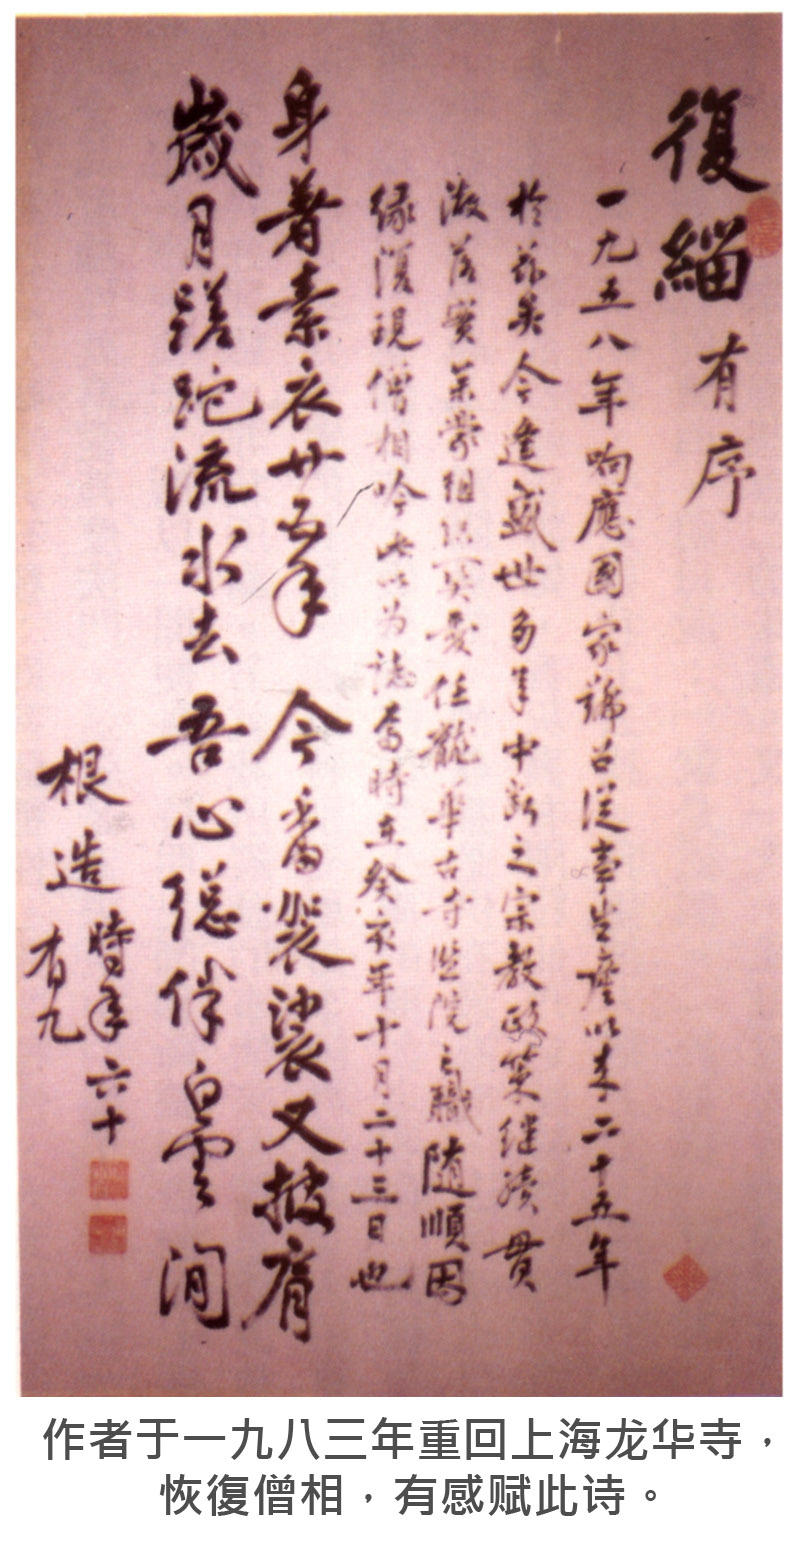 復緇有序
一九五八年响應國家號召從事生產以来二十五年
於兹矣今逢盛世多年中断之宗教政策继续贯
澈落實
龍華古寺监院之職随順因
缘復現僧相吟此以为誌時在癸亥年十月二十三日也
身着素衣廿五年 今番袈裟又披肩
歲月蹉跎流水去 吾心總伴白雲间
根造 時年六十
有九
作者于一九八三年重回上海龙华寺，
恢復僧相，有感赋此诗。